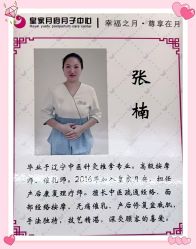 皇家月阁月子中心
Royal yuezi postpartum care center
幸福之月·尊享在月
张楠
毕业于辽宁中医针灸推拿专业，高级按摩
师、催乳师。2016年加入皇家月阁，担任
产后康复理疗师。擅长中医疏通经络、面
部经络按摩、无痛催乳、产后修复盆底肌，
手法独特，技艺精湛，深受顾客的喜爱。